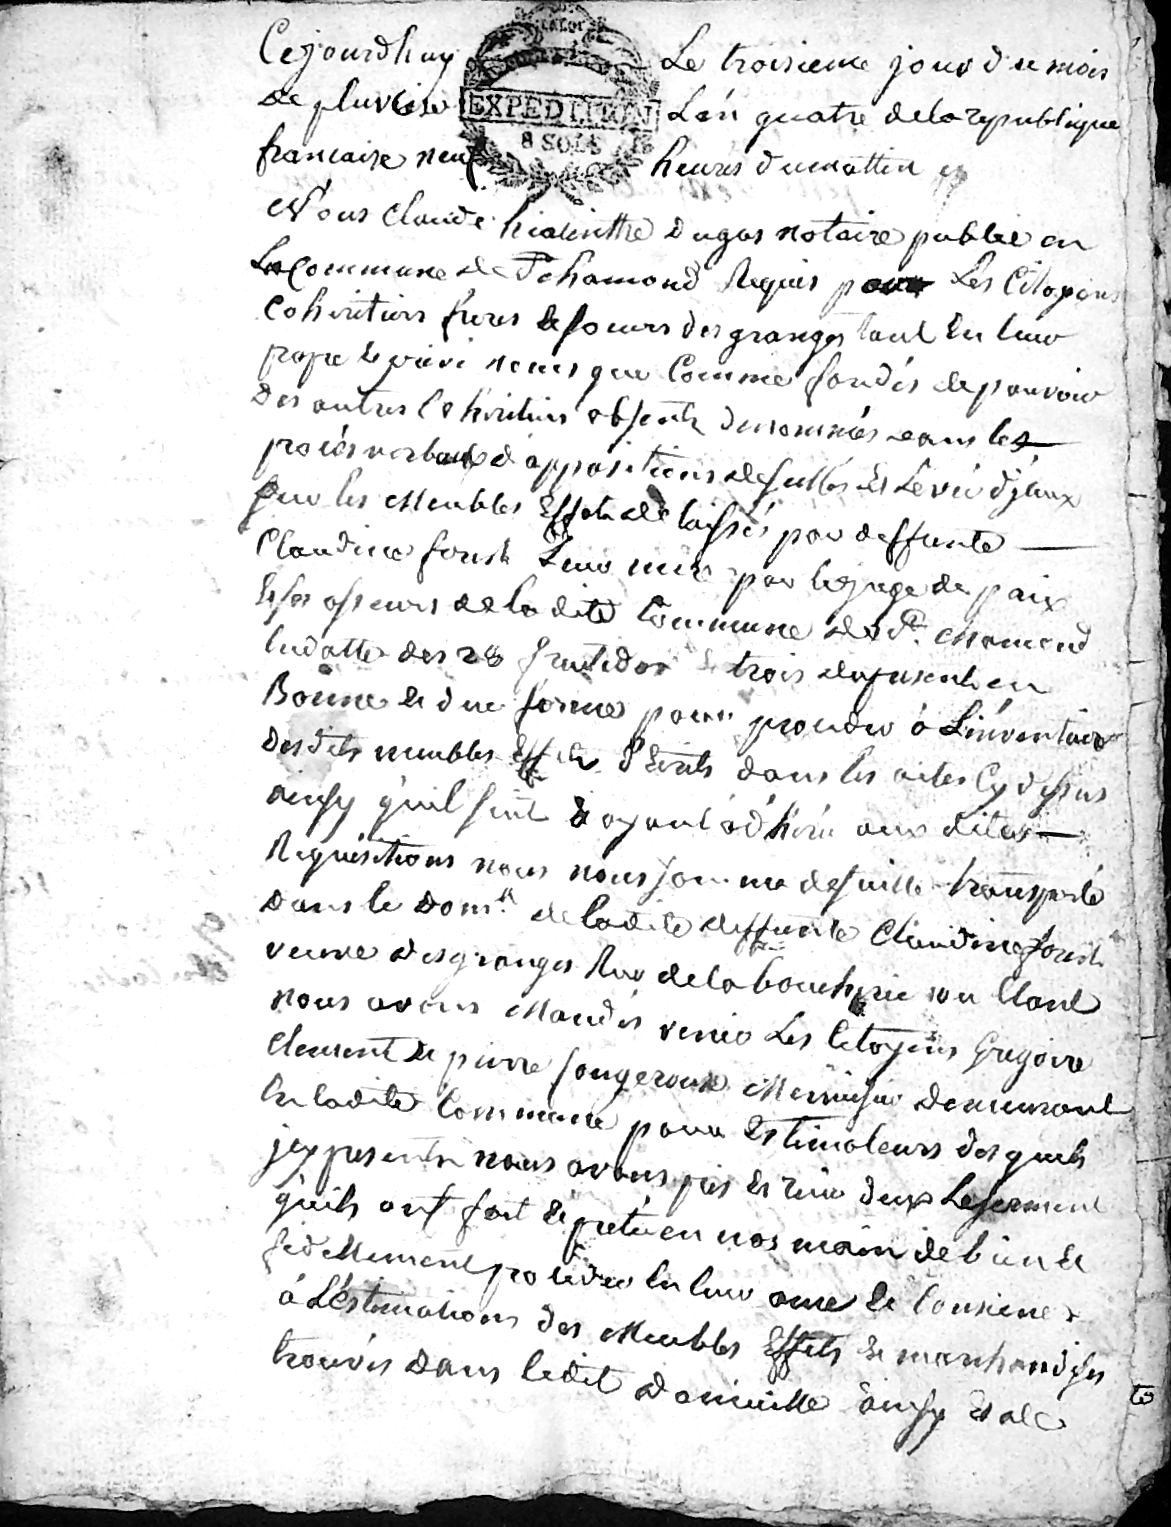 Cejourdhuy Le troisieme jour du mois
de pluviose EXPEDITION L'an quatre de la republique
8 SOLS
francaise neuf heures du mattin
Nous Claude hiacinthe dugas notaire public en
La Commune de St chamond Requis pour Les Citoyens
Cohéritiers freres & soeurs desgranges tant En leur
propre & privé noms que Comme fondés de pouvoir
Des autres Cohéritiers absents denommés dans les
procés verbaux d'appositions de scellés &
sur les Meubles Effets délaissés par deffunte
Claudine Leur mère par le juge de paix
& ses assesseurs de la dite Commune de St. chamond
En datte des 28 fructidor trois en
Bonne & due forme pour proceder à L'inventaire
Des dits meubles Effets dans les actes Cy dessus
ainsy qu'il suit & ayant adhéré aux dites
Requisitions nous nous somme de suitte transporté
Dans le dom.le de la dite deffunte Claudine
veuve desgranges Rue de la boucherie ou Etant
nous avons Mandés venir Les Citoyens Gregoire
Clement & pierre fougerouse Menuisier demeurant
En la dite Commune pour Estimateurs des quels
jcy presents nous avons pris & reçu d'eux Le serment
qu'ils ont fait & prété en nos main de bien &
fidellement proceder En leur ame & Consience
à L'éstimations des Meubles Effets & marchandises
trouvés dans le dit domicille ainsy